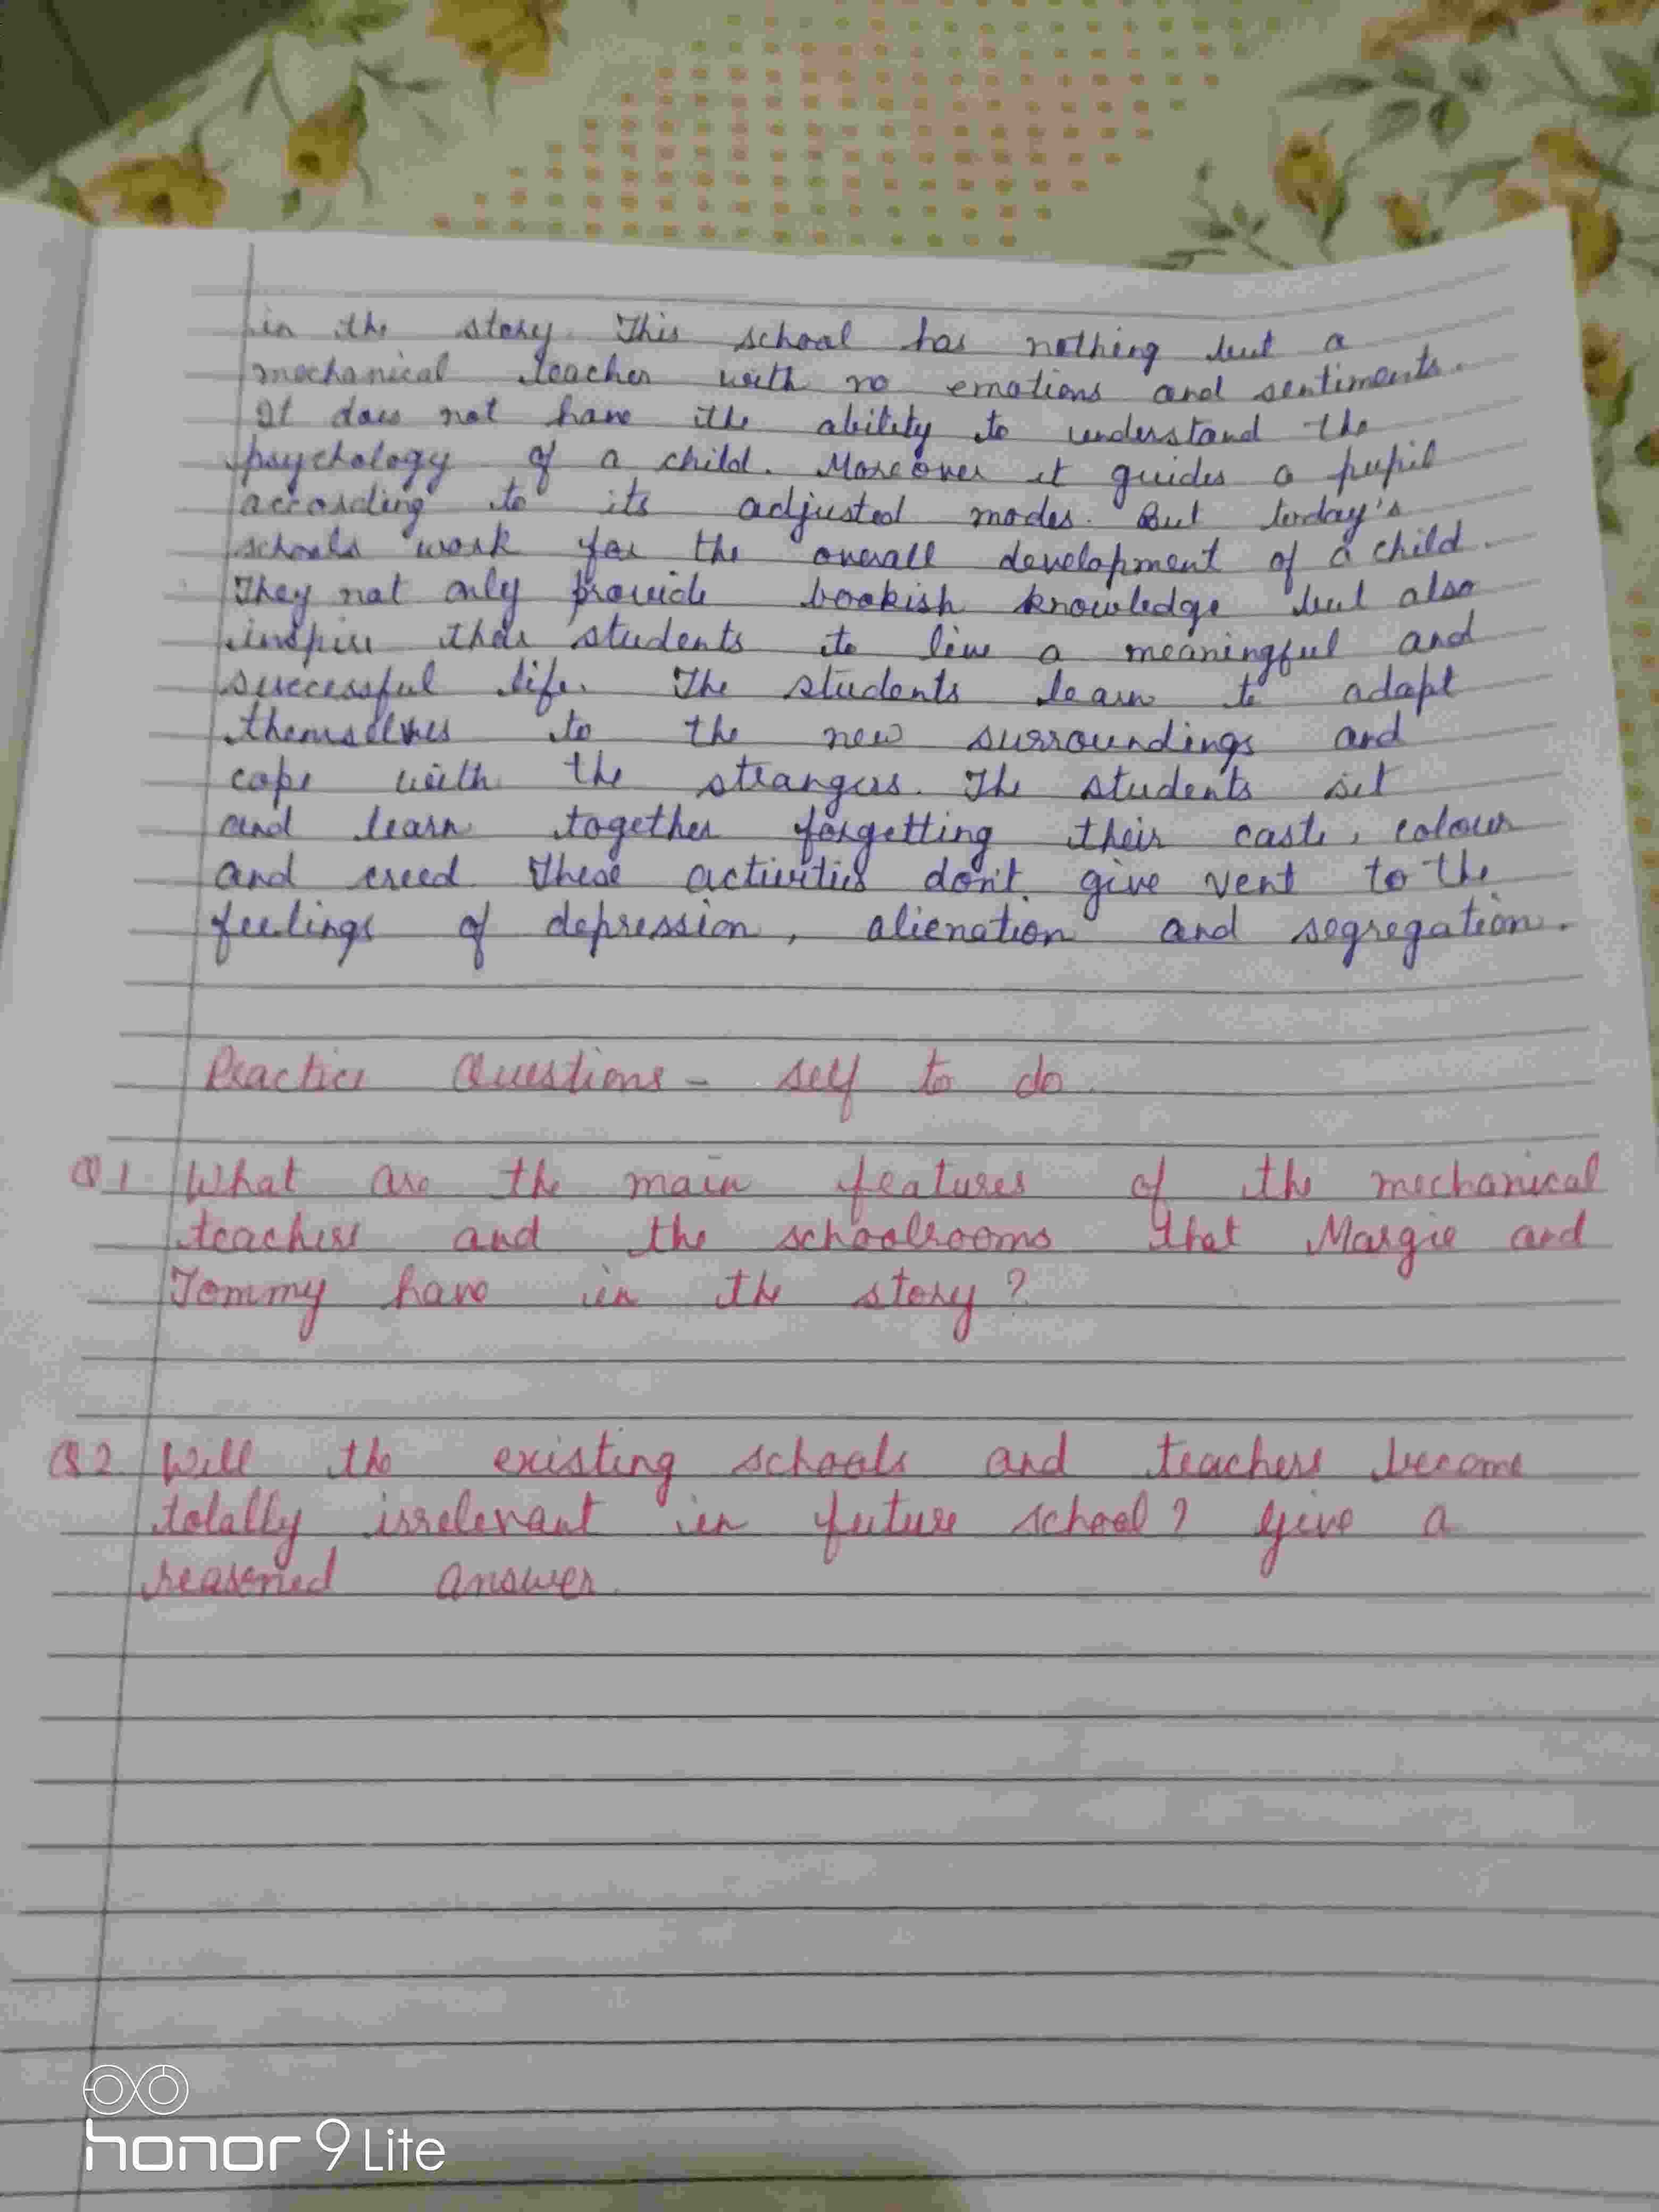 in the story. This school has nothing but a
mechanical teacher with no emotions and sentiments.
It does not have the ability to understand the
psychology of a child. Moreover it guides a pupil
according to its adjusted modes. But today's
schools work for the overall development of a child.
They not only provide bookish knowledge but also
inspire their students to live a meaningful and
successful life. The students learn to adapt
themselves to the new surroundings and
cope with the strangers. The students sit
and learn together forgetting their caste, colour
and creed. These activities don't give vent to the
feelings of depression, alienation and segregation.
Practice Questions - self to do.
Q1 What are the main features of the mechanical
teachers and the schoolrooms that Margie and
Tommy have in the story?
Q2 Will the existing schools and teachers become
totally irrelevant in future school? Give a
reasoned answer.
honor 9 Lite